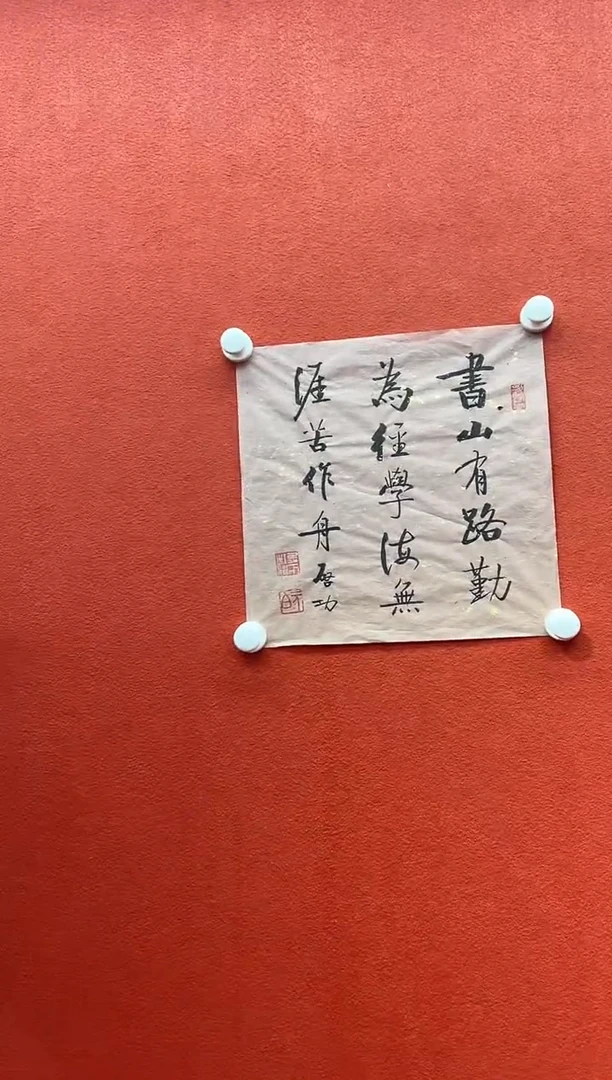 書山有路勤
為徑學海無
涯苦作舟
啓功